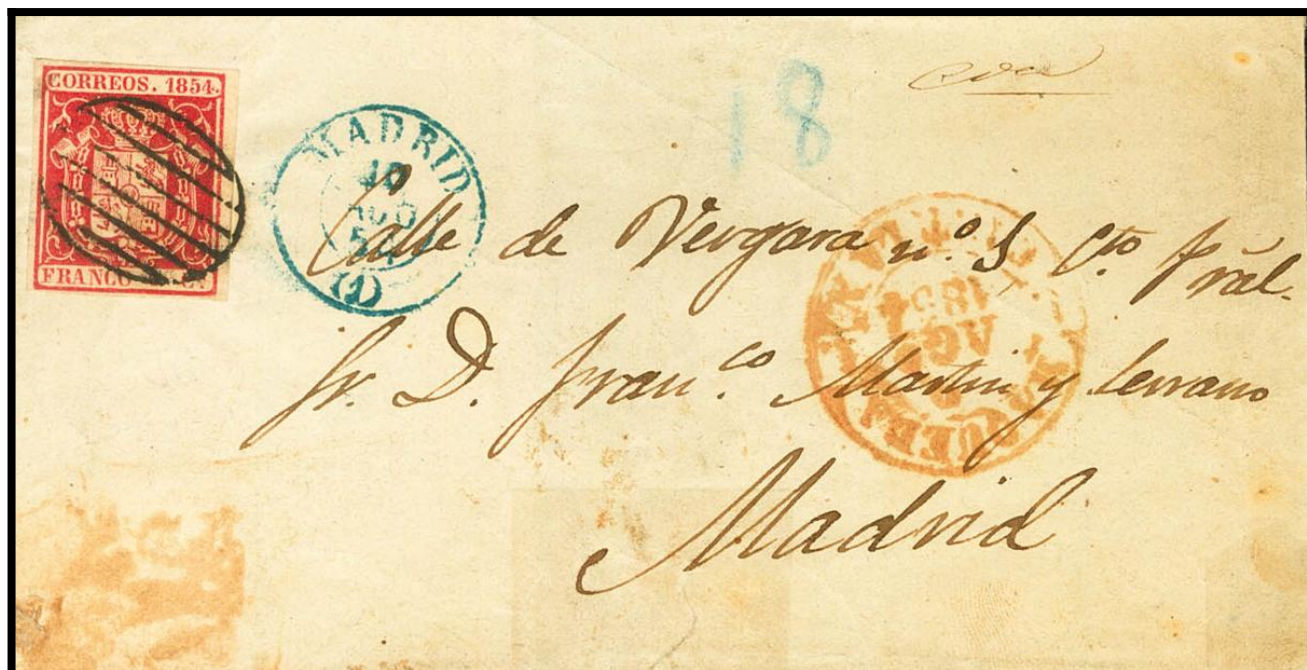 CORREOS. 1854.
FRANCO
MADRID
AGO
(1)
18
1854
AG
Calle de Vergara nº. 5 Cto. pràl.
Sr. D. Franco. Martin y Serrano
Madrid